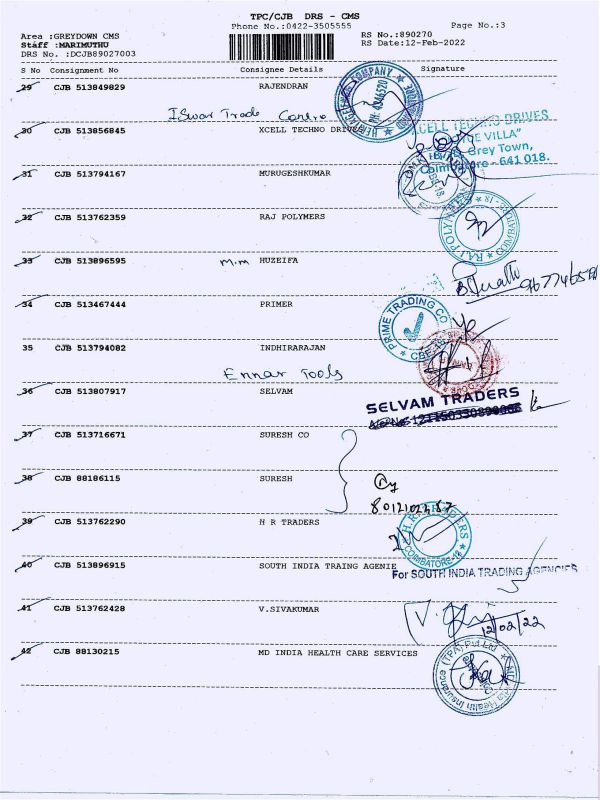 TPC/CJB DRS - CMS
Phone No.:0422-3505555
Page No.:3
Area :GREYDOWN CMS
Staff :MARIMUTHU
DRS No. :DCJB89027003
RS No.:890270
RS Date:12-Feb-2022
S No Consignment No Consignee Details Signature
29 CJB 513849829 RAJENDRAN
COMPANY
PH: 4346520
Iswar Trade Centre
30 CJB 513856845 XCELL TECHNO DRIVES
XCELL TECHNO DRIVES
VILLA"
Grey Town,
Coimbatore - 641 018.
31 CJB 513794167 MURUGESHKUMAR
32 CJB 513762359 RAJ POLYMERS
RAJ POLYMERS * COIMBATORE - 18 *
33 CJB 513896595 M.M HUZEIFA
34 CJB 513467444 PRIMER
PRIME TRADING CO
* CBE-18 *
35 CJB 513794082 INDHIRARAJAN
Ennar Tools
36 CJB 513807917 SELVAM
SELVAM TRADERS
37 CJB 513716671 SURESH CO
38 CJB 88186115 SURESH
39 CJB 513762290 H R TRADERS
H.R. TRADERS
COIMBATORE-18
40 CJB 513896915 SOUTH INDIA TRAING AGENIE
For SOUTH INDIA TRADING AGENCIES
41 CJB 513762428 V.SIVAKUMAR
12/02/22
42 CJB 88130215 MD INDIA HEALTH CARE SERVICES
MDIndia Health Insurance (TPA) Pvt Ltd